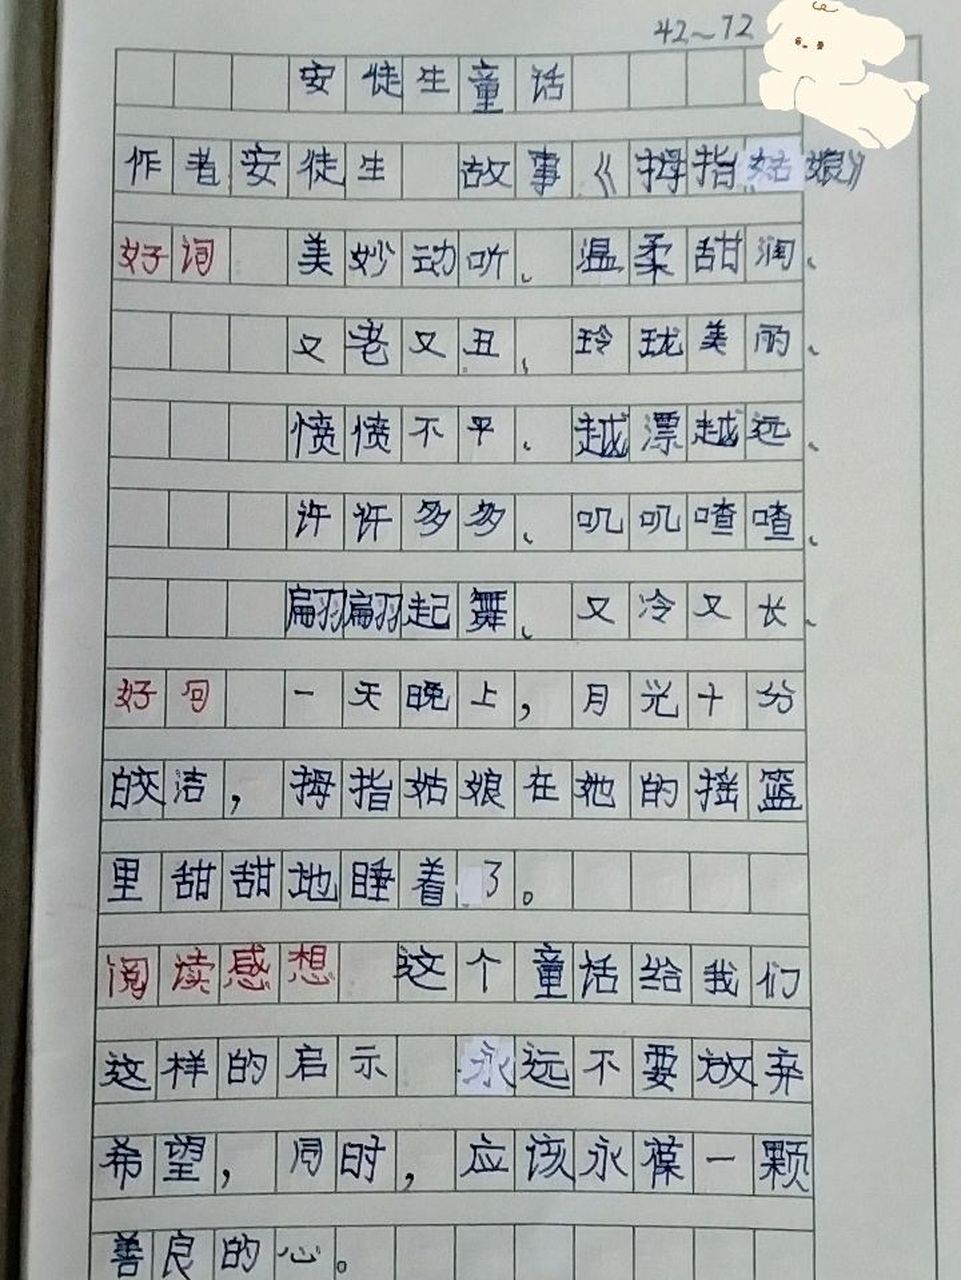 42~72
安徒生童话
作者安徒生 故事《拇指姑娘》
好词 美妙动听、温柔甜润、
又老又丑、玲珑美丽、
愤愤不平、越漂越远、
许许多多、叽叽喳喳、
翩翩起舞、又冷又长、
好句 一天晚上，月光十分
皎洁，拇指姑娘在她的摇篮
里甜甜地睡着了。
阅读感想 这个童话给我们
这样的启示 永远不要放弃
希望，同时，应该永葆一颗
善良的心。